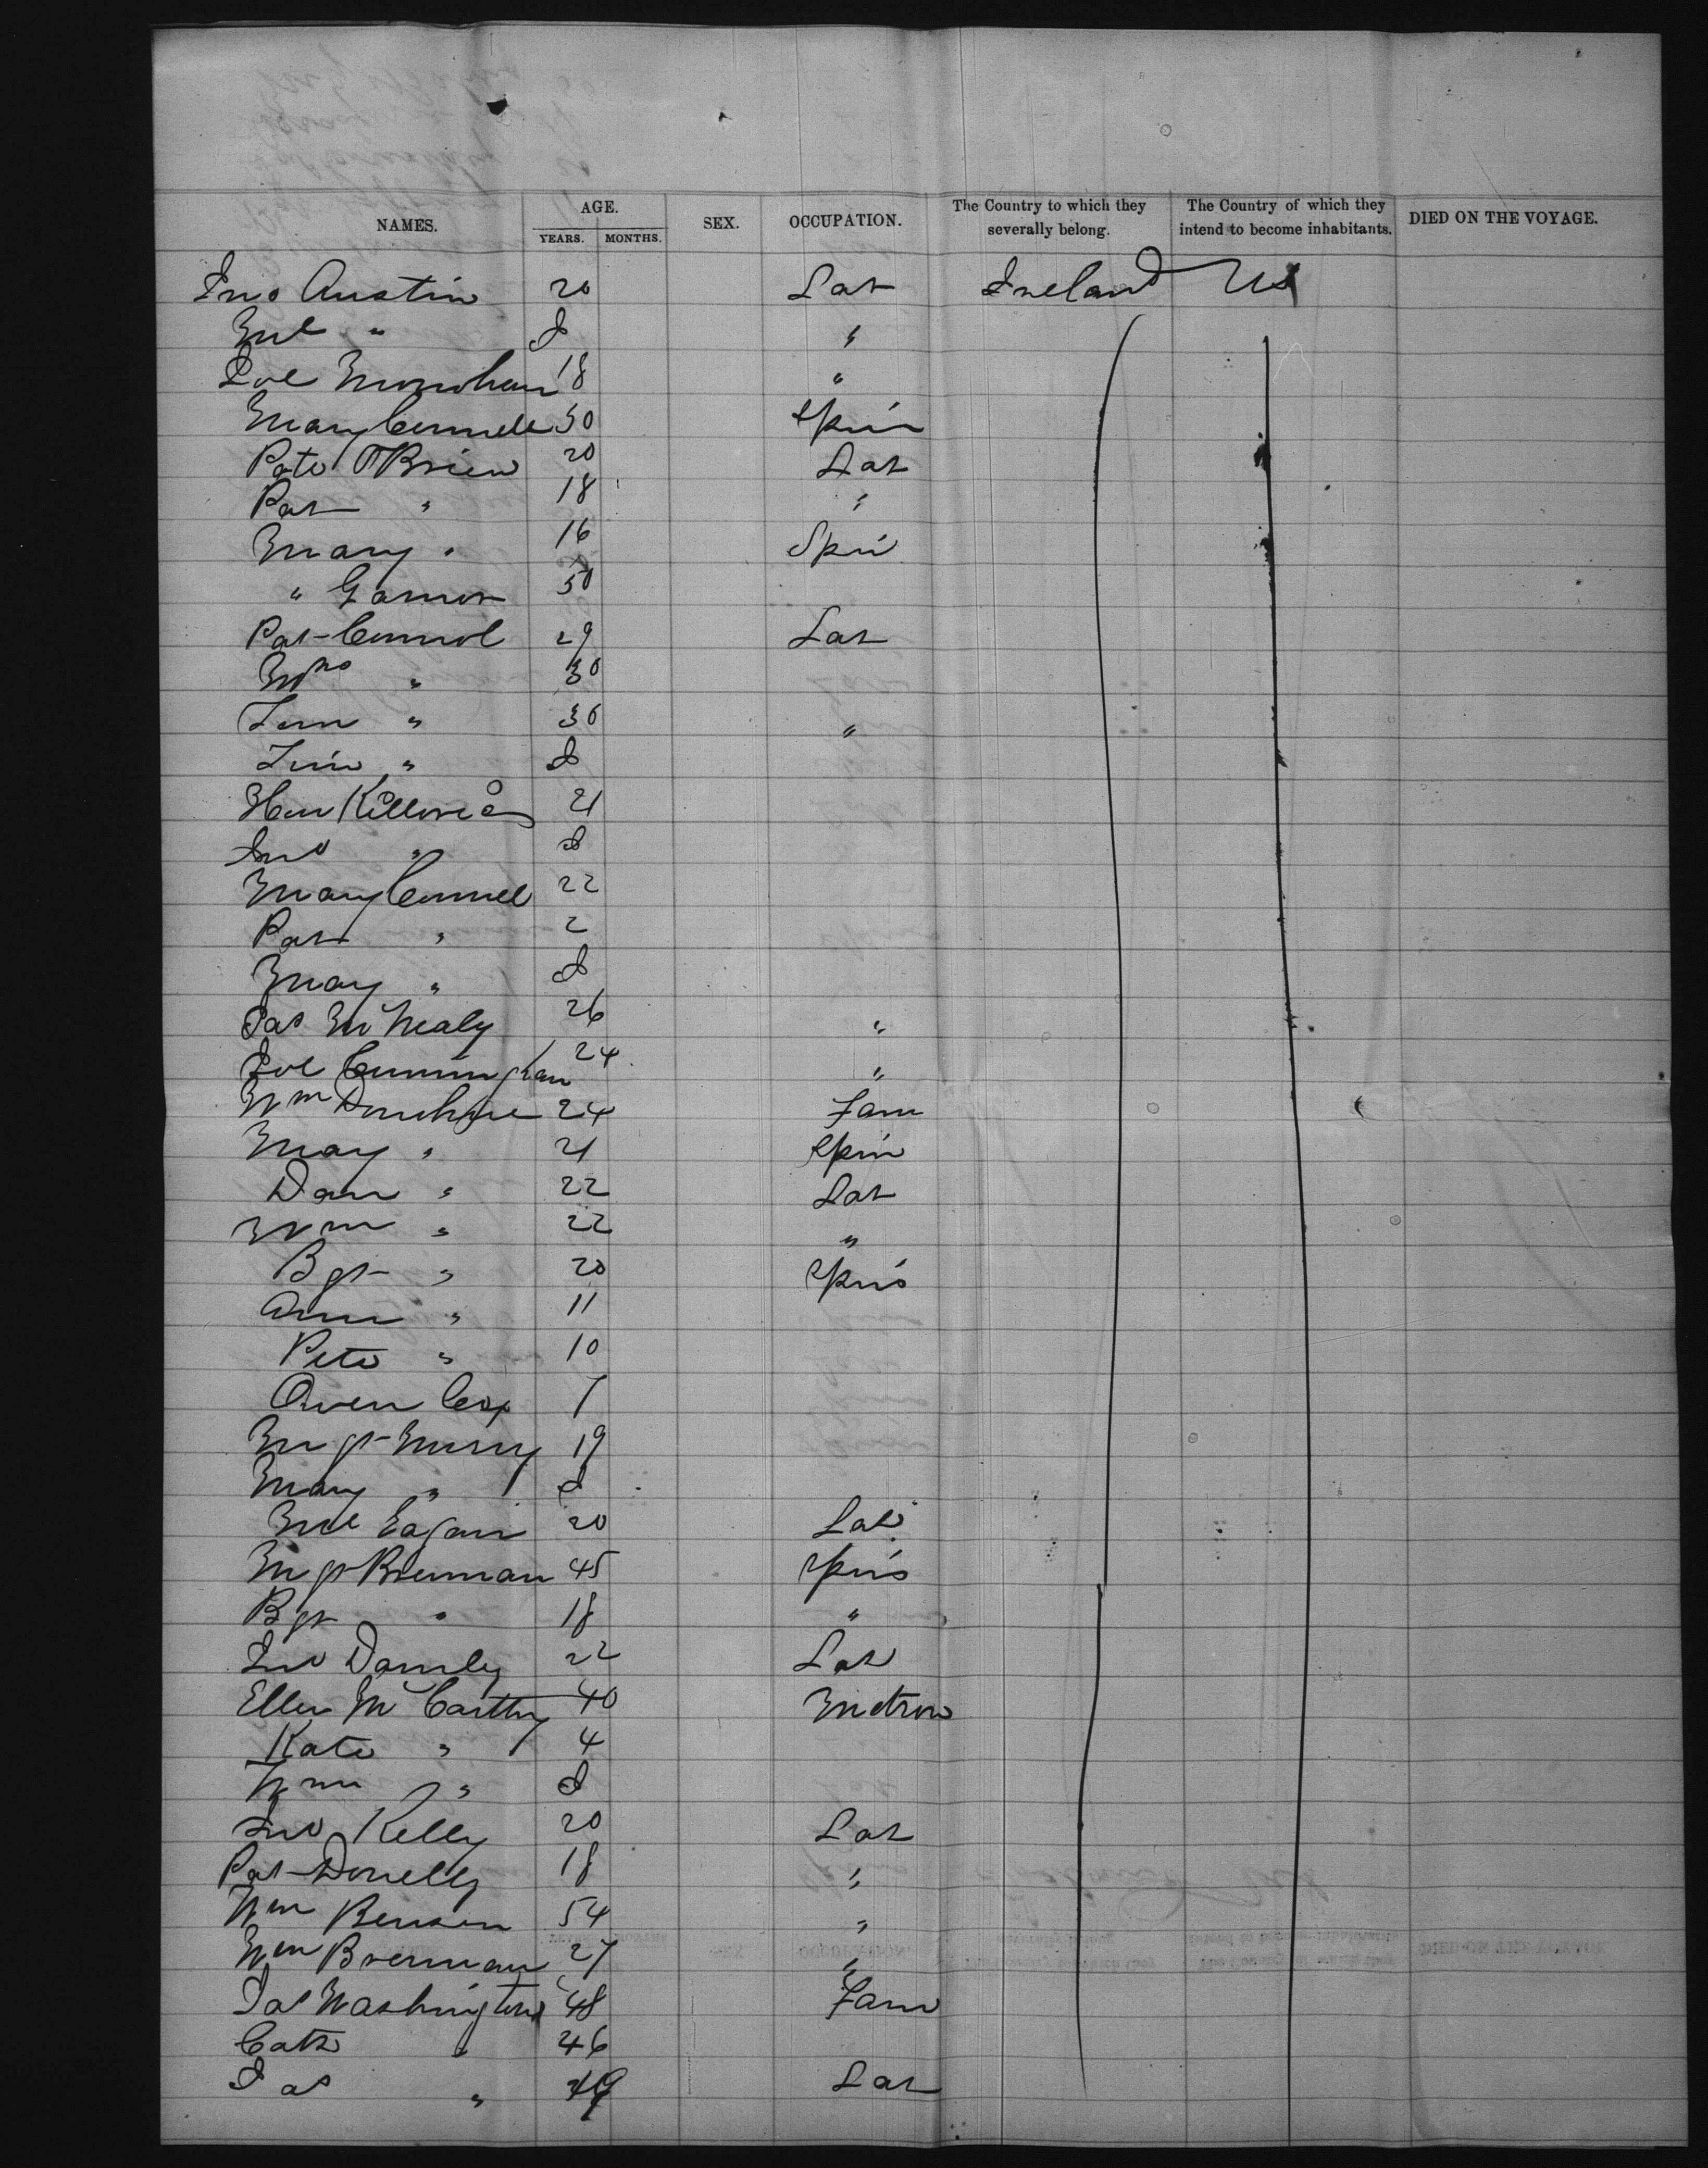 NAMES. AGE. YEARS. MONTHS. SEX. OCCUPATION. The Country to which they severally belong. The Country of which they intend to become inhabitants. DIED ON THE VOYAGE.
Jno Austin 20 Lab Ireland US
Ml " "
18 "
Mary Connell 30 Spin
Pate O'Brien 20 Lab
Pat " 18 "
Mary " 16 Spin
" 50
Pat Connol 29 Lab
Mrs " 30
" 30 "
"
21
Jno "
Mary Connell 22
Pat " 2
Mary "
Jas McNealy 26 "
Cunningham 24 "
Wm Donohue 24 Farm
Mary " 21 Spin
Dan " 22 Lab
Wm " 22 "
Bgt " 20 Spin
Ann " 11
Pete " 10
Owen Cox 7
Mgt Murry 19
Mary "
Ml Eagan 20 Lab
Mgt Brennan 45 Spin
Bgt " 18 "
Jno 22 Lab
Ellen McCarthy 40 Matron
Kate " 4
Wm "
Jno Kelly 20 Lab
Pat Donelly 18 "
Wm Benson 54 "
Wm Brennan 27 "
Jas Washington 48 Farm
Cath " 46
Jas " Lab